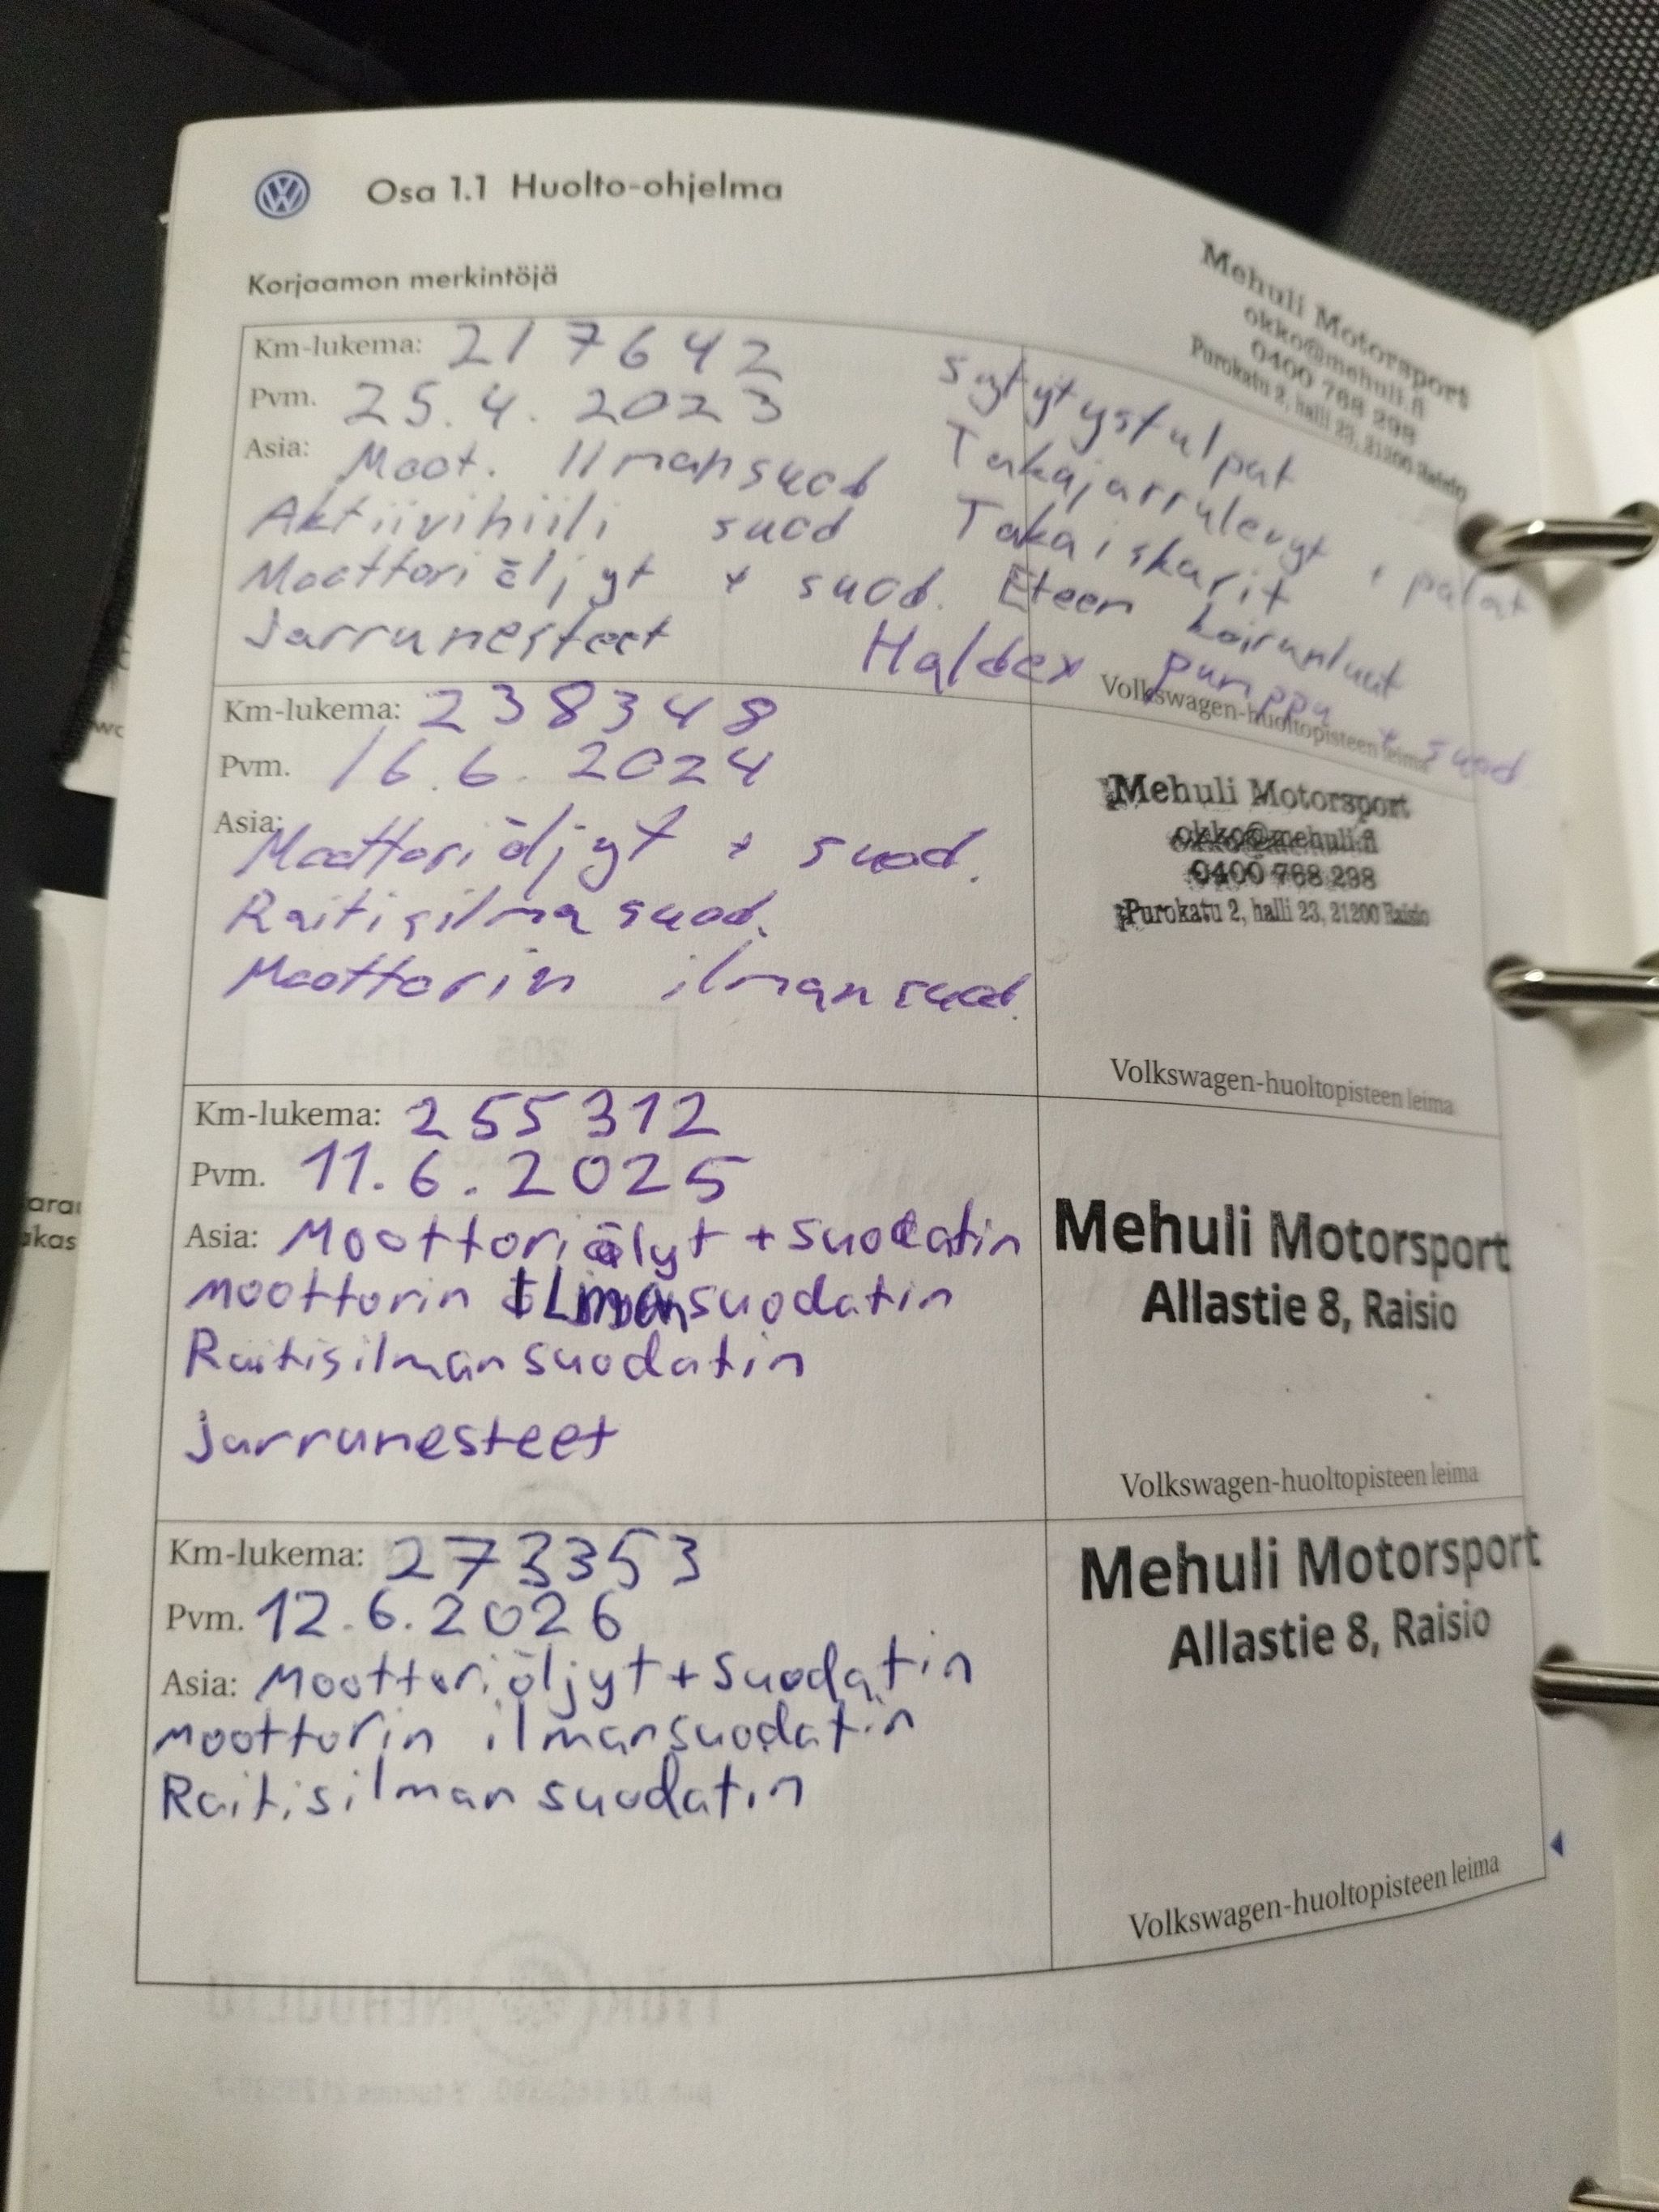 Osa 1.1 Huolto-ohjelma
Korjaamon merkintöjä
Mehuli Motorsport
okko@mehuli.fi
0400 768 298
Purokatu 2, halli 23, 21200 Raisio
Km-lukema: 217642
Pvm. 25.4.2023
Asia: Moot. Ilmansuod
Aktiivihiili suod
Moottoriöljyt + suod.
Jarrunesteet
Sytytystulpat
Takajarrulevyt + palat
Takaiskarit
Eteen koiranluut
Haldex pumppu + suod
Volkswagen-huoltopisteen leima
Km-lukema: 238348
Pvm. 16.6.2024
Asia:
Moottoriöljyt + suod.
Raitisilmasuod.
Moottorin ilmansuod.
Mehuli Motorsport
okko@mehuli.fi
0400 768 298
Purokatu 2, halli 23, 21200 Raisio
Volkswagen-huoltopisteen leima
Km-lukema: 255312
Pvm. 11.6.2025
Asia: Moottoriölyt + suodatin
moottorin ILmansuodatin
Raitisilmansuodatin
jarrunesteet
Mehuli Motorsport
Allastie 8, Raisio
Volkswagen-huoltopisteen leima
Km-lukema: 273353
Pvm. 12.6.2026
Asia: Moottoriöljyt + suodatin
moottorin ilmansuodatin
Raitisilmansuodatin
Mehuli Motorsport
Allastie 8, Raisio
Volkswagen-huoltopisteen leima